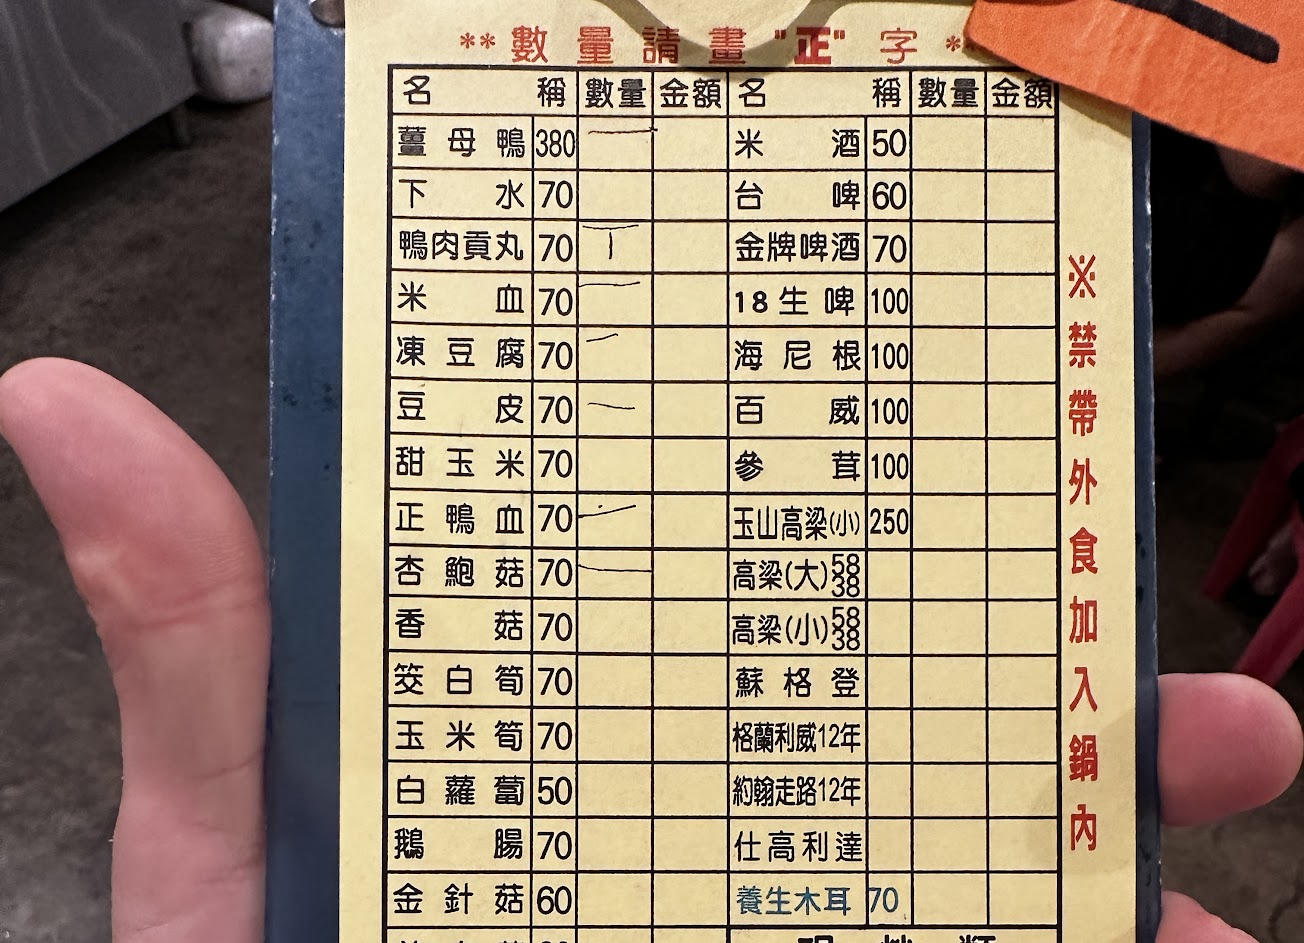 **數量請畫"正"字**
名稱 數量 金額 名稱 數量 金額
薑母鴨 380 一 米酒 50
下水 70 台啤 60
鴨肉貢丸 70 丅 金牌啤酒 70
米血 70 一 18生啤 100
凍豆腐 70 一 海尼根 100
豆皮 70 一 百威 100
甜玉米 70 參茸 100
正鴨血 70 一 玉山高梁(小) 250
杏鮑菇 70 一 高梁(大) 58 38
香菇 70 高梁(小) 58 38
筊白筍 70 蘇格登
玉米筍 70 格蘭利威12年
白蘿蔔 50 約翰走路12年
鵝腸 70 仕高利達
金針菇 60 養生木耳 70
※禁帶外食加入鍋內